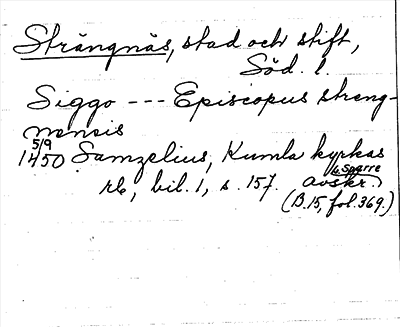 Strängnäs, stad och stift,
Söd. l.
Siggo --- Episcopus streng-
nensis
5/9
1450 Samzelius, Kumla kyrkas
rb, bil. 1, s. 157. avskr.
G Sparre
(B.15, fol. 369.)